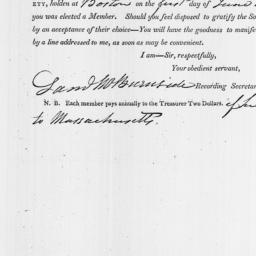 ETY, holden at Boston on the first day of June
you was elected a Member. Should you feel disposed to gratify the So
by an acceptance of their choice—You will have the goodness to manifes
by a line addressed to me, as soon as may be convenient.
I am—Sir, respectfully,
Your obedient servant,
Saml McBurnside Recording Secretar
N. B. Each member pays annually to the Treasurer Two Dollars. if
to Massachusetts.